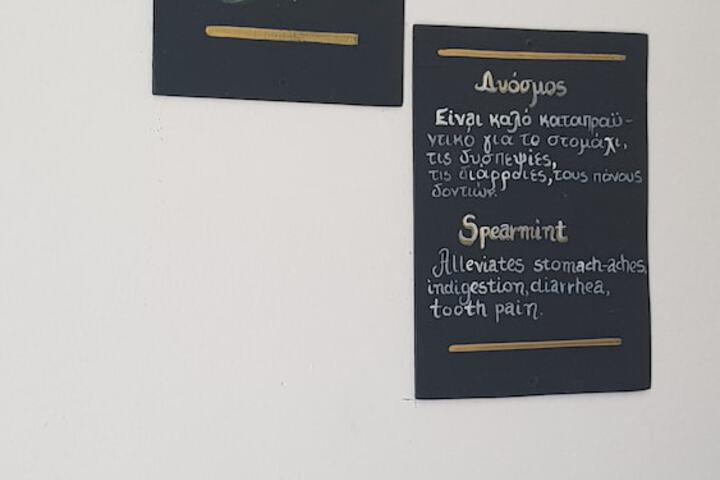 Δυόσμος
Είναι καλό καταπραϋ-
ντικό για το στομάχι,
τις δυσπεψίες,
τις διάρροιες, τους πόνους
δοντιών.
Spearmint
Alleviates stomach-aches,
indigestion, diarrhea,
tooth pain.